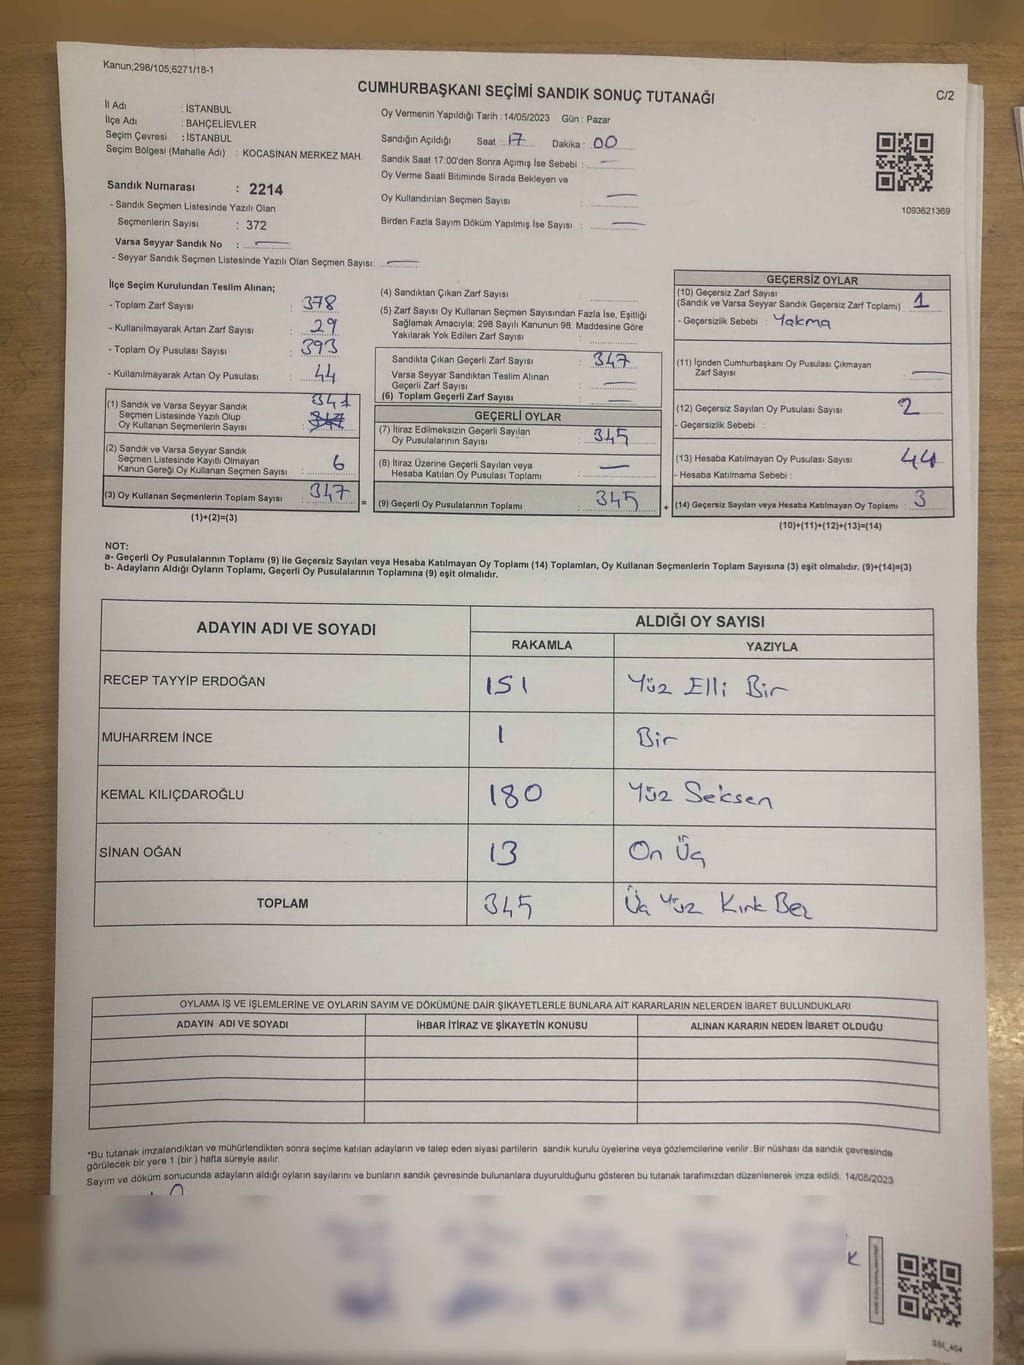 Kanun;298/105;6271/18-1
CUMHURBAŞKANI SEÇİMİ SANDIK SONUÇ TUTANAĞI
C/2
İl Adı : İSTANBUL
İlçe Adı : BAHÇELİEVLER
Seçim Çevresi : İSTANBUL
Seçim Bölgesi (Mahalle Adı) : KOCASİNAN MERKEZ MAH.
Oy Vermenin Yapıldığı Tarih : 14/05/2023 Gün : Pazar
Sandığın Açıldığı Saat : 17 Dakika : 00
Sandık Saat 17:00'den Sonra Açımış İse Sebebi : —
Oy Verme Saati Bitiminde Sırada Bekleyen ve
Oy Kullandırılan Seçmen Sayısı : —
Birden Fazla Sayım Döküm Yapılmış İse Sayısı : —
1093621369
Sandık Numarası : 2214
- Sandık Seçmen Listesinde Yazılı Olan
Seçmenlerin Sayısı : 372
Varsa Seyyar Sandık No : —
- Seyyar Sandık Seçmen Listesinde Yazılı Olan Seçmen Sayısı: —
İlçe Seçim Kurulundan Teslim Alınan;
- Toplam Zarf Sayısı : 378
- Kullanılmayarak Artan Zarf Sayısı : 29
- Toplam Oy Pusulası Sayısı : 393
- Kullanılmayarak Artan Oy Pusulası : 44
(1) Sandık ve Varsa Seyyar Sandık 341
Seçmen Listesinde Yazılı Olup
Oy Kullanan Seçmenlerin Sayısı :
(2) Sandık ve Varsa Seyyar Sandık
Seçmen Listesinde Kayıtlı Olmayan
Kanun Gereği Oy Kullanan Seçmen Sayısı : 6
(3) Oy Kullanan Seçmenlerin Toplam Sayısı : 347
(1)+(2)=(3)
=
(4) Sandıktan Çıkan Zarf Sayısı :
(5) Zarf Sayısı Oy Kullanan Seçmen Sayısından Fazla İse, Eşitliği
Sağlamak Amacıyla; 298 Sayılı Kanunun 98. Maddesine Göre
Yakılarak Yok Edilen Zarf Sayısı :
Sandıkta Çıkan Geçerli Zarf Sayısı : 347
Varsa Seyyar Sandıktan Teslim Alınan
Geçerli Zarf Sayısı : —
(6) Toplam Geçerli Zarf Sayısı : —
GEÇERLİ OYLAR
(7) İtiraz Edilmeksizin Geçerli Sayılan
Oy Pusulalarının Sayısı : 345
(8) İtiraz Üzerine Geçerli Sayılan veya
Hesaba Katılan Oy Pusulası Toplamı : —
(9) Geçerli Oy Pusulalarının Toplamı : 345
+
GEÇERSİZ OYLAR
(10) Geçersiz Zarf Sayısı
(Sandık ve Varsa Seyyar Sandık Geçersiz Zarf Toplamı) : 1
- Geçersizlik Sebebi : Yakma
(11) İçinden Cumhurbaşkanı Oy Pusulası Çıkmayan
Zarf Sayısı : —
(12) Geçersiz Sayılan Oy Pusulası Sayısı : 2
- Geçersizlik Sebebi :
(13) Hesaba Katılmayan Oy Pusulası Sayısı : 44
- Hesaba Katılmama Sebebi :
(14) Geçersiz Sayılan veya Hesaba Katılmayan Oy Toplamı : 3
(10)+(11)+(12)+(13)=(14)
NOT:
a- Geçerli Oy Pusulalarının Toplamı (9) ile Geçersiz Sayılan veya Hesaba Katılmayan Oy Toplamı (14) Toplamları, Oy Kullanan Seçmenlerin Toplam Sayısına (3) eşit olmalıdır. (9)+(14)=(3)
b- Adayların Aldığı Oyların Toplamı, Geçerli Oy Pusulalarının Toplamına (9) eşit olmalıdır.
ADAYIN ADI VE SOYADI ALDIĞI OY SAYISI
RAKAMLA YAZIYLA
RECEP TAYYİP ERDOĞAN 151 Yüz Elli Bir
MUHARREM İNCE 1 Bir
KEMAL KILIÇDAROĞLU 180 Yüz Seksen
SİNAN OĞAN 13 On Üç
TOPLAM 345 Üç Yüz Kırk Beş
OYLAMA İŞ VE İŞLEMLERİNE VE OYLARIN SAYIM VE DÖKÜMÜNE DAİR ŞİKAYETLERLE BUNLARA AİT KARARLARIN NELERDEN İBARET BULUNDUKLARI
ADAYIN ADI VE SOYADI İHBAR İTİRAZ VE ŞİKAYETİN KONUSU ALINAN KARARIN NEDEN İBARET OLDUĞU
*Bu tutanak imzalandıktan ve mühürlendikten sonra seçime katılan adayların ve talep eden siyasi partilerin sandık kurulu üyelerine veya gözlemcilerine verilir .Bir nüshası da sandık çevresinde
görülecek bir yere 1 (bir ) hafta süreyle asılır.
Sayım ve döküm sonucunda adayların aldığı oyların sayılarını ve bunların sandık çevresinde bulunanlara duyurulduğunu gösteren bu tutanak tarafımızdan düzenlenerek imza edildi. 14/05/2023